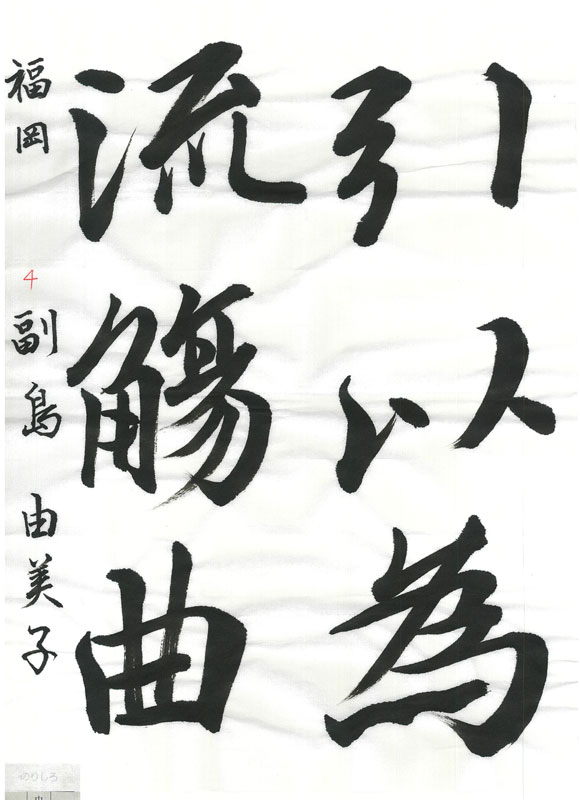 引以為
流觴曲
福岡 4 副島 由美子
のりしろ